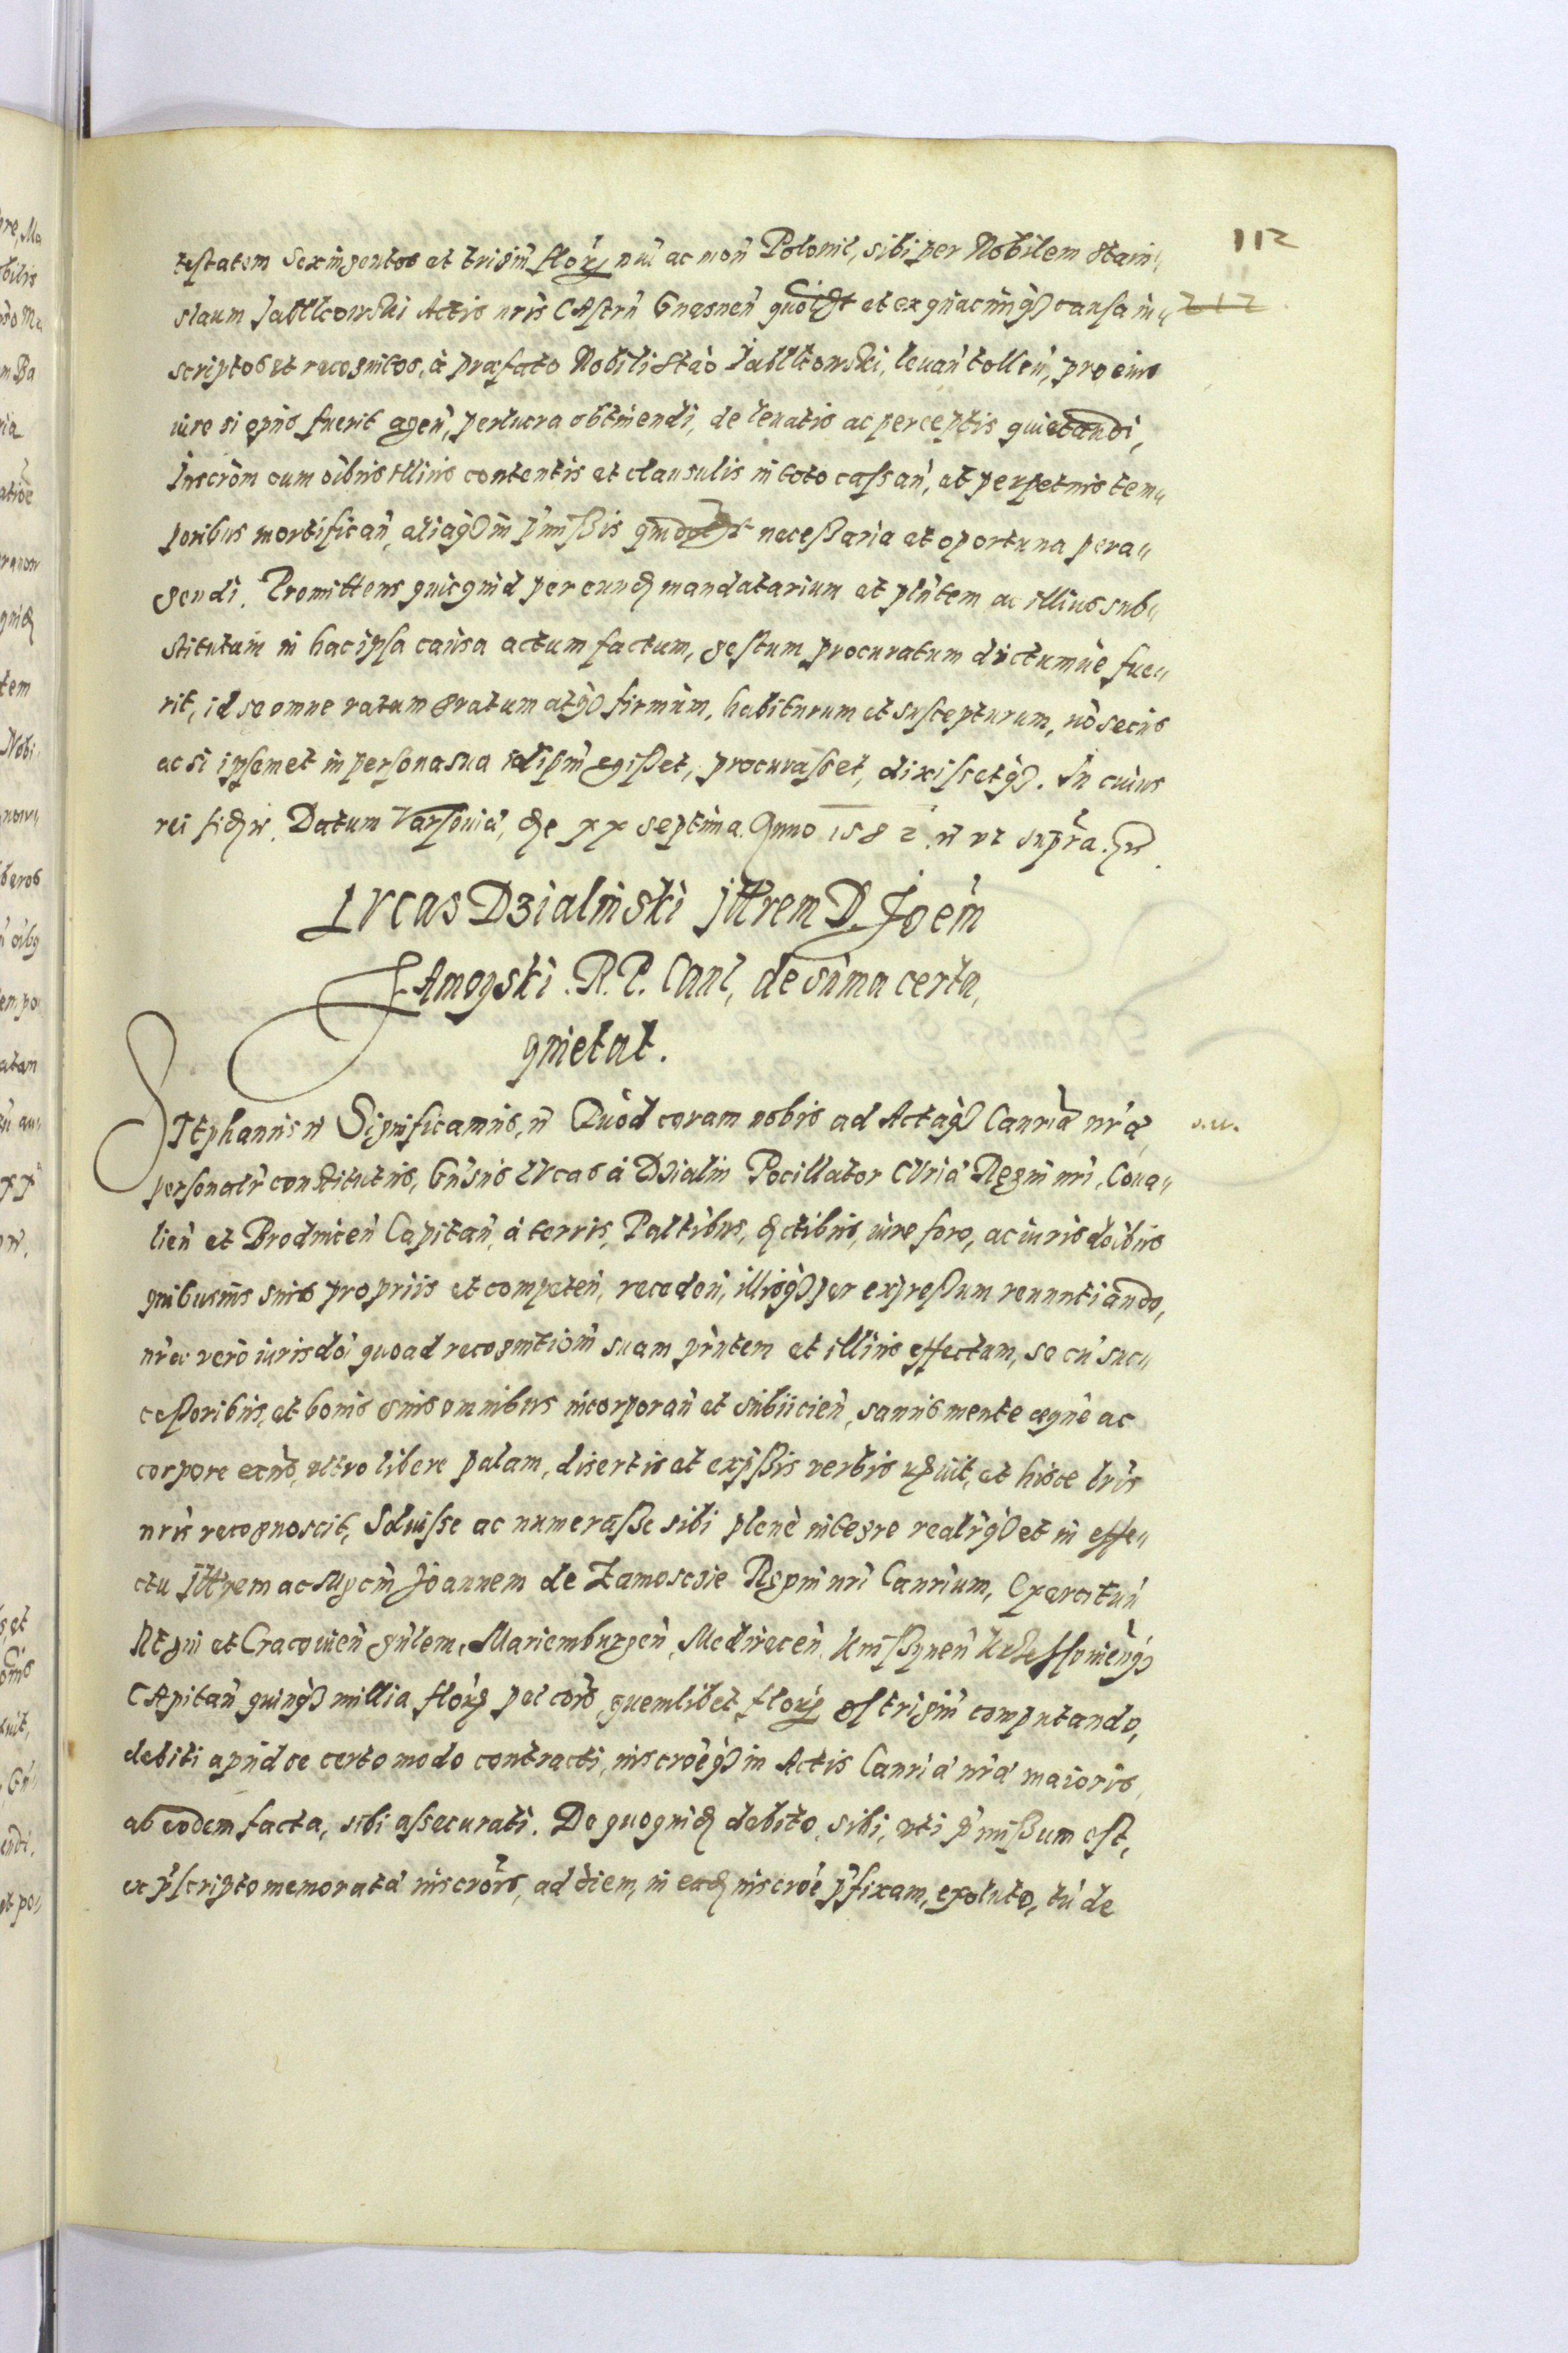 112
testatem Sexingentos et trigin̄ floꝝ nūi ac mon̄ Polonic̄, sibi per Nobilem Stani„
212
slaum Jabllkowski Actis nr̄is CAstrn̄ Gnesnen̄ et ex causa in„
scriptos et recognitos, à præfato Nobili Stāo Jabllkowski, levan̄ tollen̄, pro eius
iure si opus fuerit agen̄, per lucra obtinendi, de levatis ac perceptis quietandi,
Inscrōm cum oībus illius contentis et clausulis in toto cassan̄, et perpetuis tem„
poribus mortifican̄, aliaqꝫ in p̄missis necessaria et oportuna pera„
gendi. Promittens quicquid per eundꝫ mandatarium et pn̄tem ac illius sub„
stitutum in hac ipsa causa actum factum, gestum procuratum dictumue fue„
rit, id se omne ratum gratum atqꝫ firmum, habiturum et suscepturum, nō secus
ac si ipsemet in persona sua idipm̄ egisset, procurasset, dixissetqꝫ. In cuius
rei fidꝫ Datum Varsouiæ, die xx septima Anno 1582. ut supra.
LVcas Dzialinski Illrem D. Joēm
ZAmoyski. R. P. Canc̄, de sum̄a certa,
quietat.
STephanus Significamus, Quòd coram nobis ad Actaqꝫ Canriæ nr̄æ,
personalr̄ constitutus, Gn̄sus LVcas à Dzialin Pocillator CVriæ Regni nr̄i, Coua„
lien̄ et Brodnicen̄ Capitan̄, à terris, Paltibus, dꝫctibus, iure foro, ac iurisdoībus
quibusuis suis propriis et competen̄, receden̄, illisqꝫ per expressum renuntiando,
nr̄æ verò iurisdōi quoad recognitiōm suam pn̄tem et illius effectum, se cū suc„
cessoribus, et bonis suis omnibus incorporan̄ et subiicien̄, sanus mente æque ac
corpore exn̄s, ultro libere palam, disertis et exp̄ssis verbis et hisce lr̄is
nr̄is recognoscit, Soluisse ac numerasse sibi plenè integre realr̄qꝫ et in effe„
ctu Illrem ac Joannem de Zamoscie Regni nr̄i Canrium, Exercituū
Regni et Cracouien̄ gn̄lem, Mariemburgen̄, Medirecen̄, Knissynen̄
CApitan̄ quinqꝫ millia floꝝ pol quemlibet floꝝ trigin̄ computando,
debiti apud se certo modo contracti, inscrōeqꝫ in Actis Canriæ nr̄æ maioris,
ab eodem facta, sibi assecurati. De quoquidꝫ debito, sibi, uti p̄missum est,
ex p̄scripto memoratæ inscrōis, ad diem, in eadꝫ inscrōe p̄fixam, exoluto, tū de